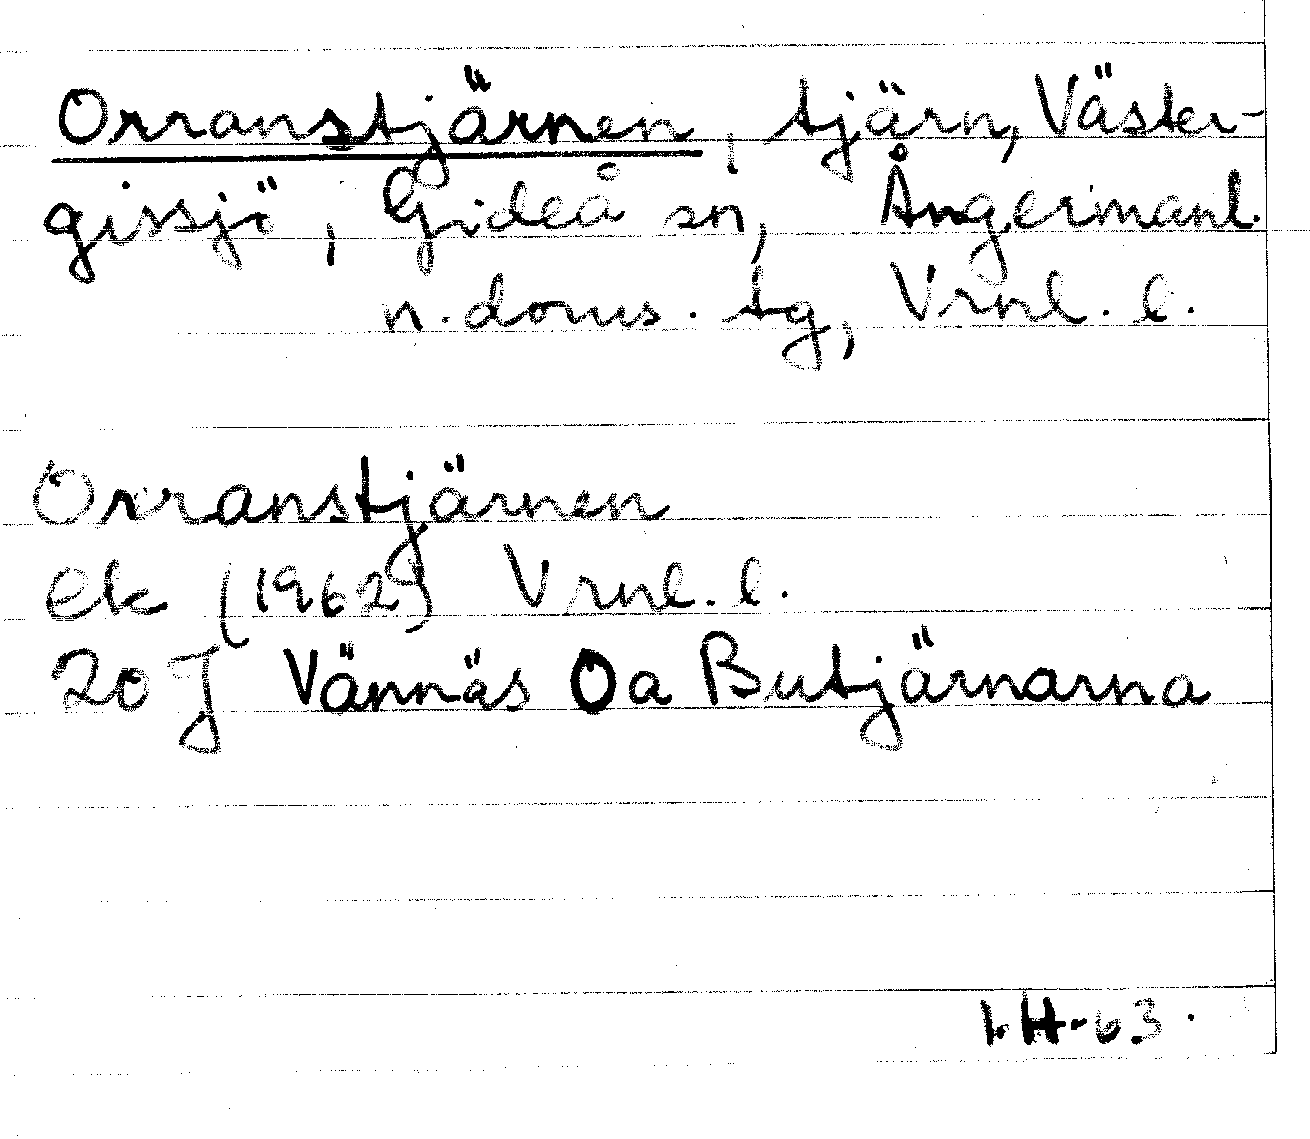 Orranstjärnen, tjärn, Väster-
gissjö, Gideå sn, Ångermanl.
n. doms. tg, Vrnl. l.
Orranstjärnen
ek (1962) Vrnl. l.
20 J Vännäs Oa Butjärnarna
I.H-63.